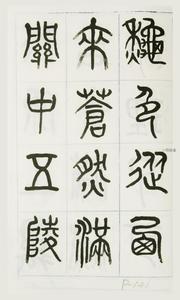 秋色從西
來蒼然滿
關中五陵
P-121